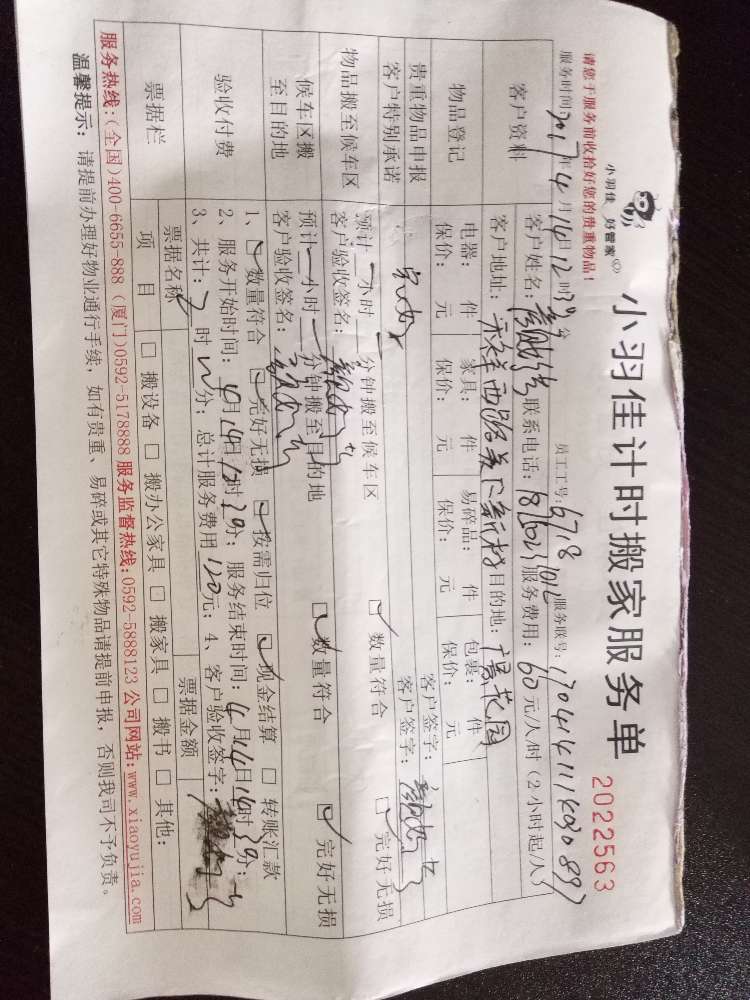 小羽佳 好管家
小羽佳计时搬家服务单
2022563
请您于服务前收拾好您的贵重物品!
服务时间:2017年4月14日12时39分 员工工号:6718 服务联号:
客户资料
客户姓名: 联系电话: 服务费用:60元/人/时(2小时起/人)
客户地址: 目的地:
物品登记
电器: 件 家具: 件 易碎品: 件 包裹: 件
保价: 元 保价: 元 保价: 元 保价: 元
贵重物品申报
客户签字:
客户特别承诺
客户签字:
物品搬至候车区
预计 小时 分钟搬至候车区 ☑ 数量符合 ☑ 完好无损
客户验收签名:
候车区搬至目的地
预计 小时 分钟搬至目的地 ☑ 数量符合 ☑ 完好无损
客户验收签名:
验收付费
1、☑ 数量符合 ☑ 完好无损 ☑ 按需归位 ☑ 现金结算 □ 转账汇款
2、服务开始时间:4月14日12时39分; 服务结束时间:4月14日14时39分;
3、共计:2时 分; 总计服务费用120元; 4、客户验收签字:
票据栏
票据名称 票据金额
项目 □ 搬设备 □ 搬办公家具 □ 搬家具 □ 搬书 □ 其他:
服务热线:(全国)400-6655-888 (厦门)0592-5178888 服务监督热线:0592-5888123 公司网站:www.xiaoyujia.com
温馨提示: 请提前办理好物业通行手续,如有贵重、易碎或其它特殊物品请提前申报,否则我司不予负责。